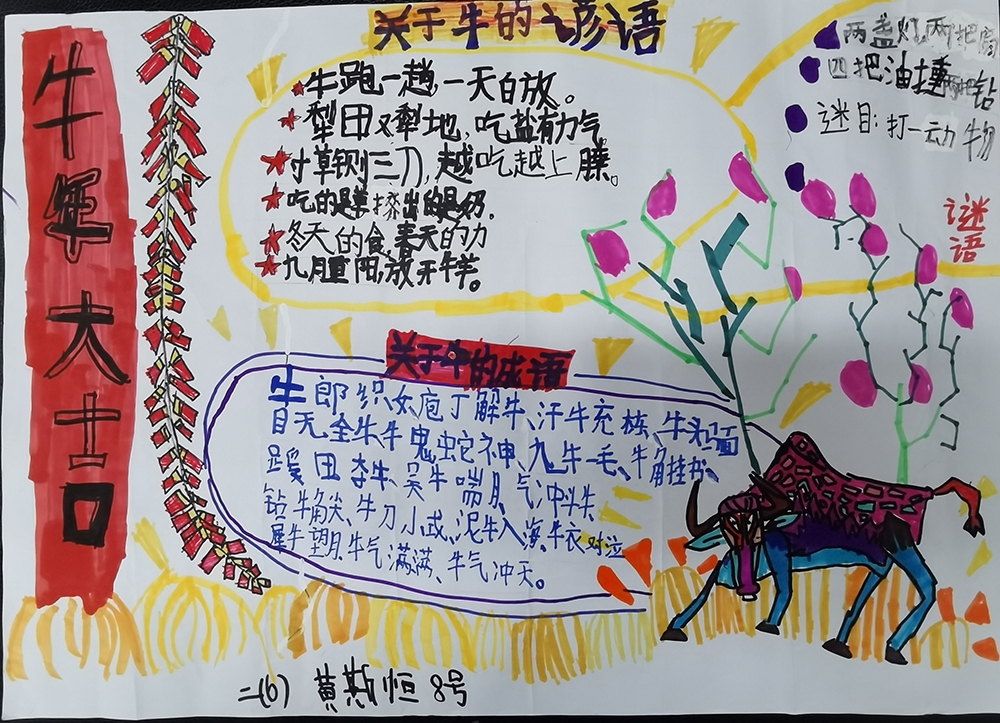 牛年大吉
关于牛的谚语
牛跑一趟,一天白放。
犁田又犁地,吃盐有力气
寸草铡三刀,越吃越上膘。
吃的是草挤出的是奶.
冬天的食,春天的力
九月重阳,放开牛羊。
两盏灯,两把扇
四把油捶 两把钻
谜目:打一动物
谜语
关于牛的成语
牛郎织女庖丁解牛、汗牛充栋、牛头
目无全牛牛鬼蛇神、九牛一毛、牛角挂书、
蹊田夺牛、吴牛喘月、气冲斗牛
钻牛角尖、牛刀小试、泥牛入海、牛衣对泣
犀牛望月、牛气满满、牛气冲天。
二(6) 黄斯恒 8号